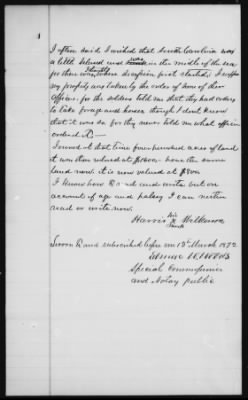 I often said, I wished that South Carolina was
a little Island and was in the middle of the sea
for them was, where secession first started. I suppose
my property was taken by the order of some of their
Officers. for the soldiers told me that they had orders
to take forage and horses, though I don't know
that it was so, for they never told me what officer
ordered it.
I owned at that time four hundred acres of land
it was then valued at $1600 - have the same
land now. it is now valued at $800
I know how to read and write but on
account of age and palsey I can neither
read or write now.
Harris his X mark Wilkerson
Sworn to and subscribed before me 13th March 1872
Special Commissioner
and Notary public